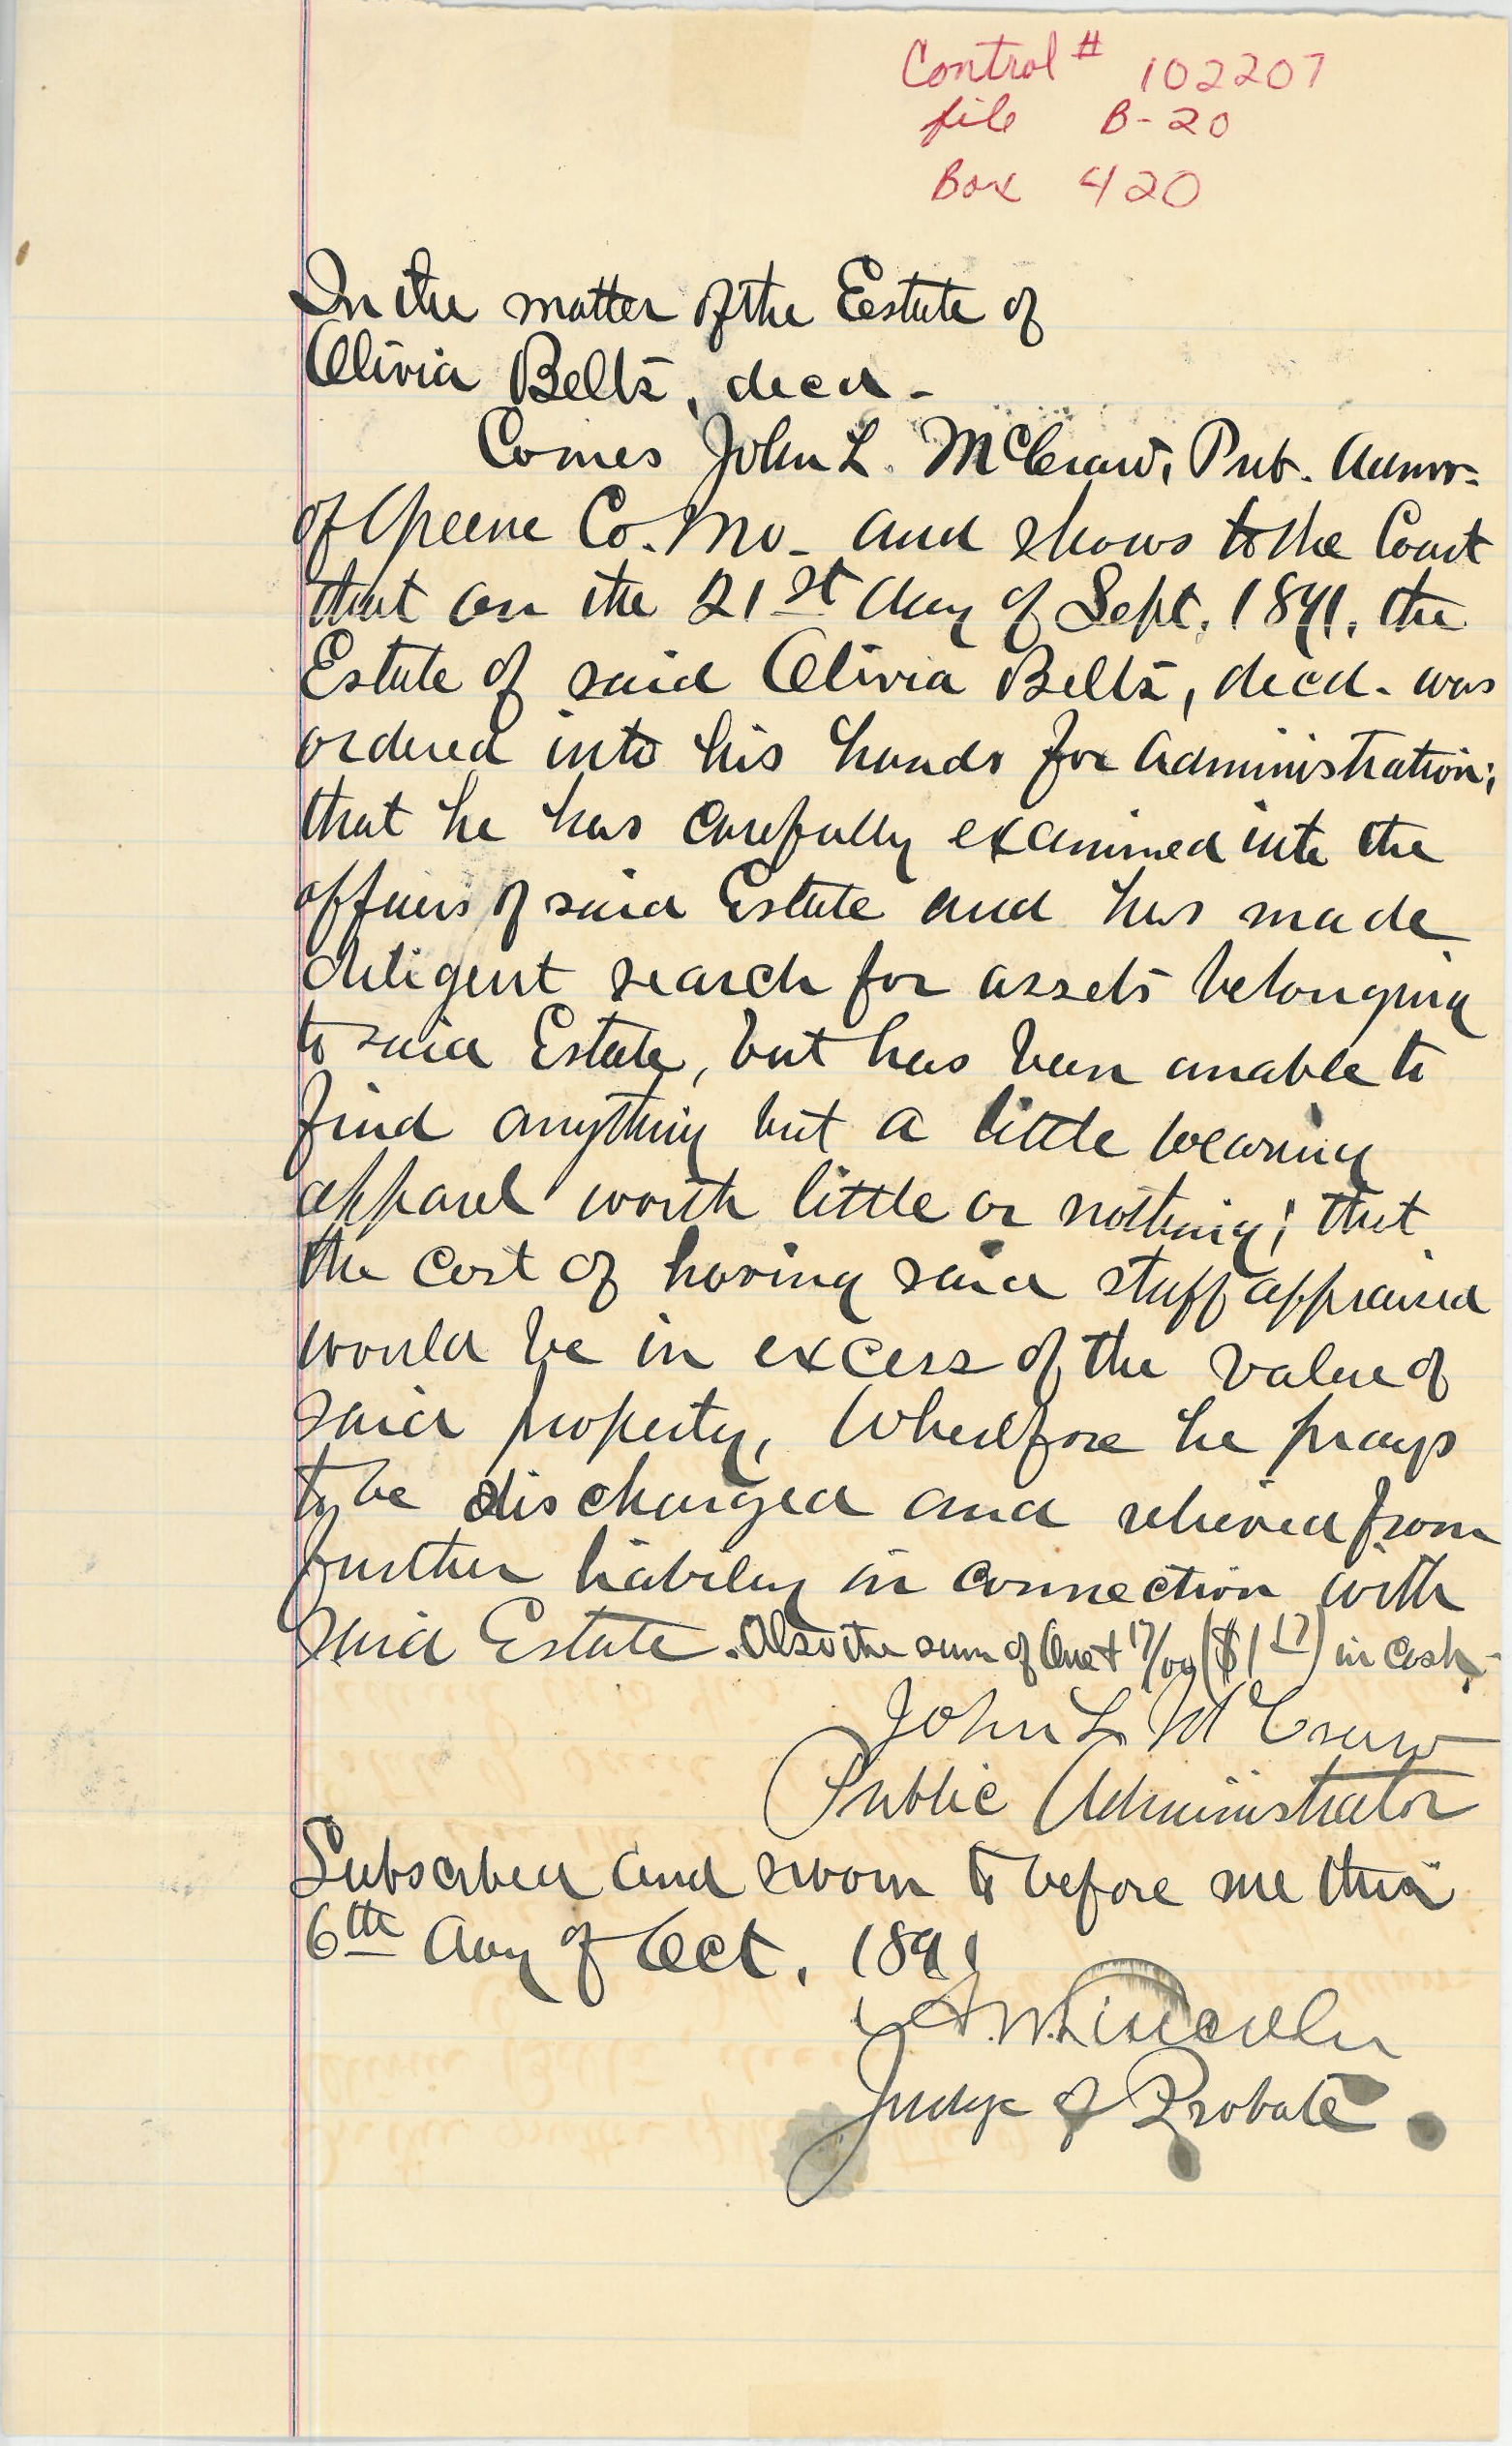 Control # 102207
file B-20
Box 420
In the matter of the Estate of
Olivia Belts, decd.
Comes John L. McCraw, Pub. Admr.
of Greene Co. Mo. and shows to the Court
that on the 21st day of Sept, 1891, the
Estate of said Olivia Belts, decd. was
ordered into his hands for administration;
that he has carefully examined into the
affairs of said Estate and has made
diligent search for assets belonging
to said Estate, but has been unable to
find anything but a little wearing
apparel worth little or nothing; that
the cost of having said stuff appraised
would be in excess of the value of
said property, Wherefore he prays
to be discharged and relieved from
further liability in connection with
said Estate. Also the sum of One + 17/00 ($1 17) in cash.
John L McCraw
Public Administrator
Subscribed and sworn to before me this
6th day of Oct, 1891
A.W. Lincoln
Judge of Probate